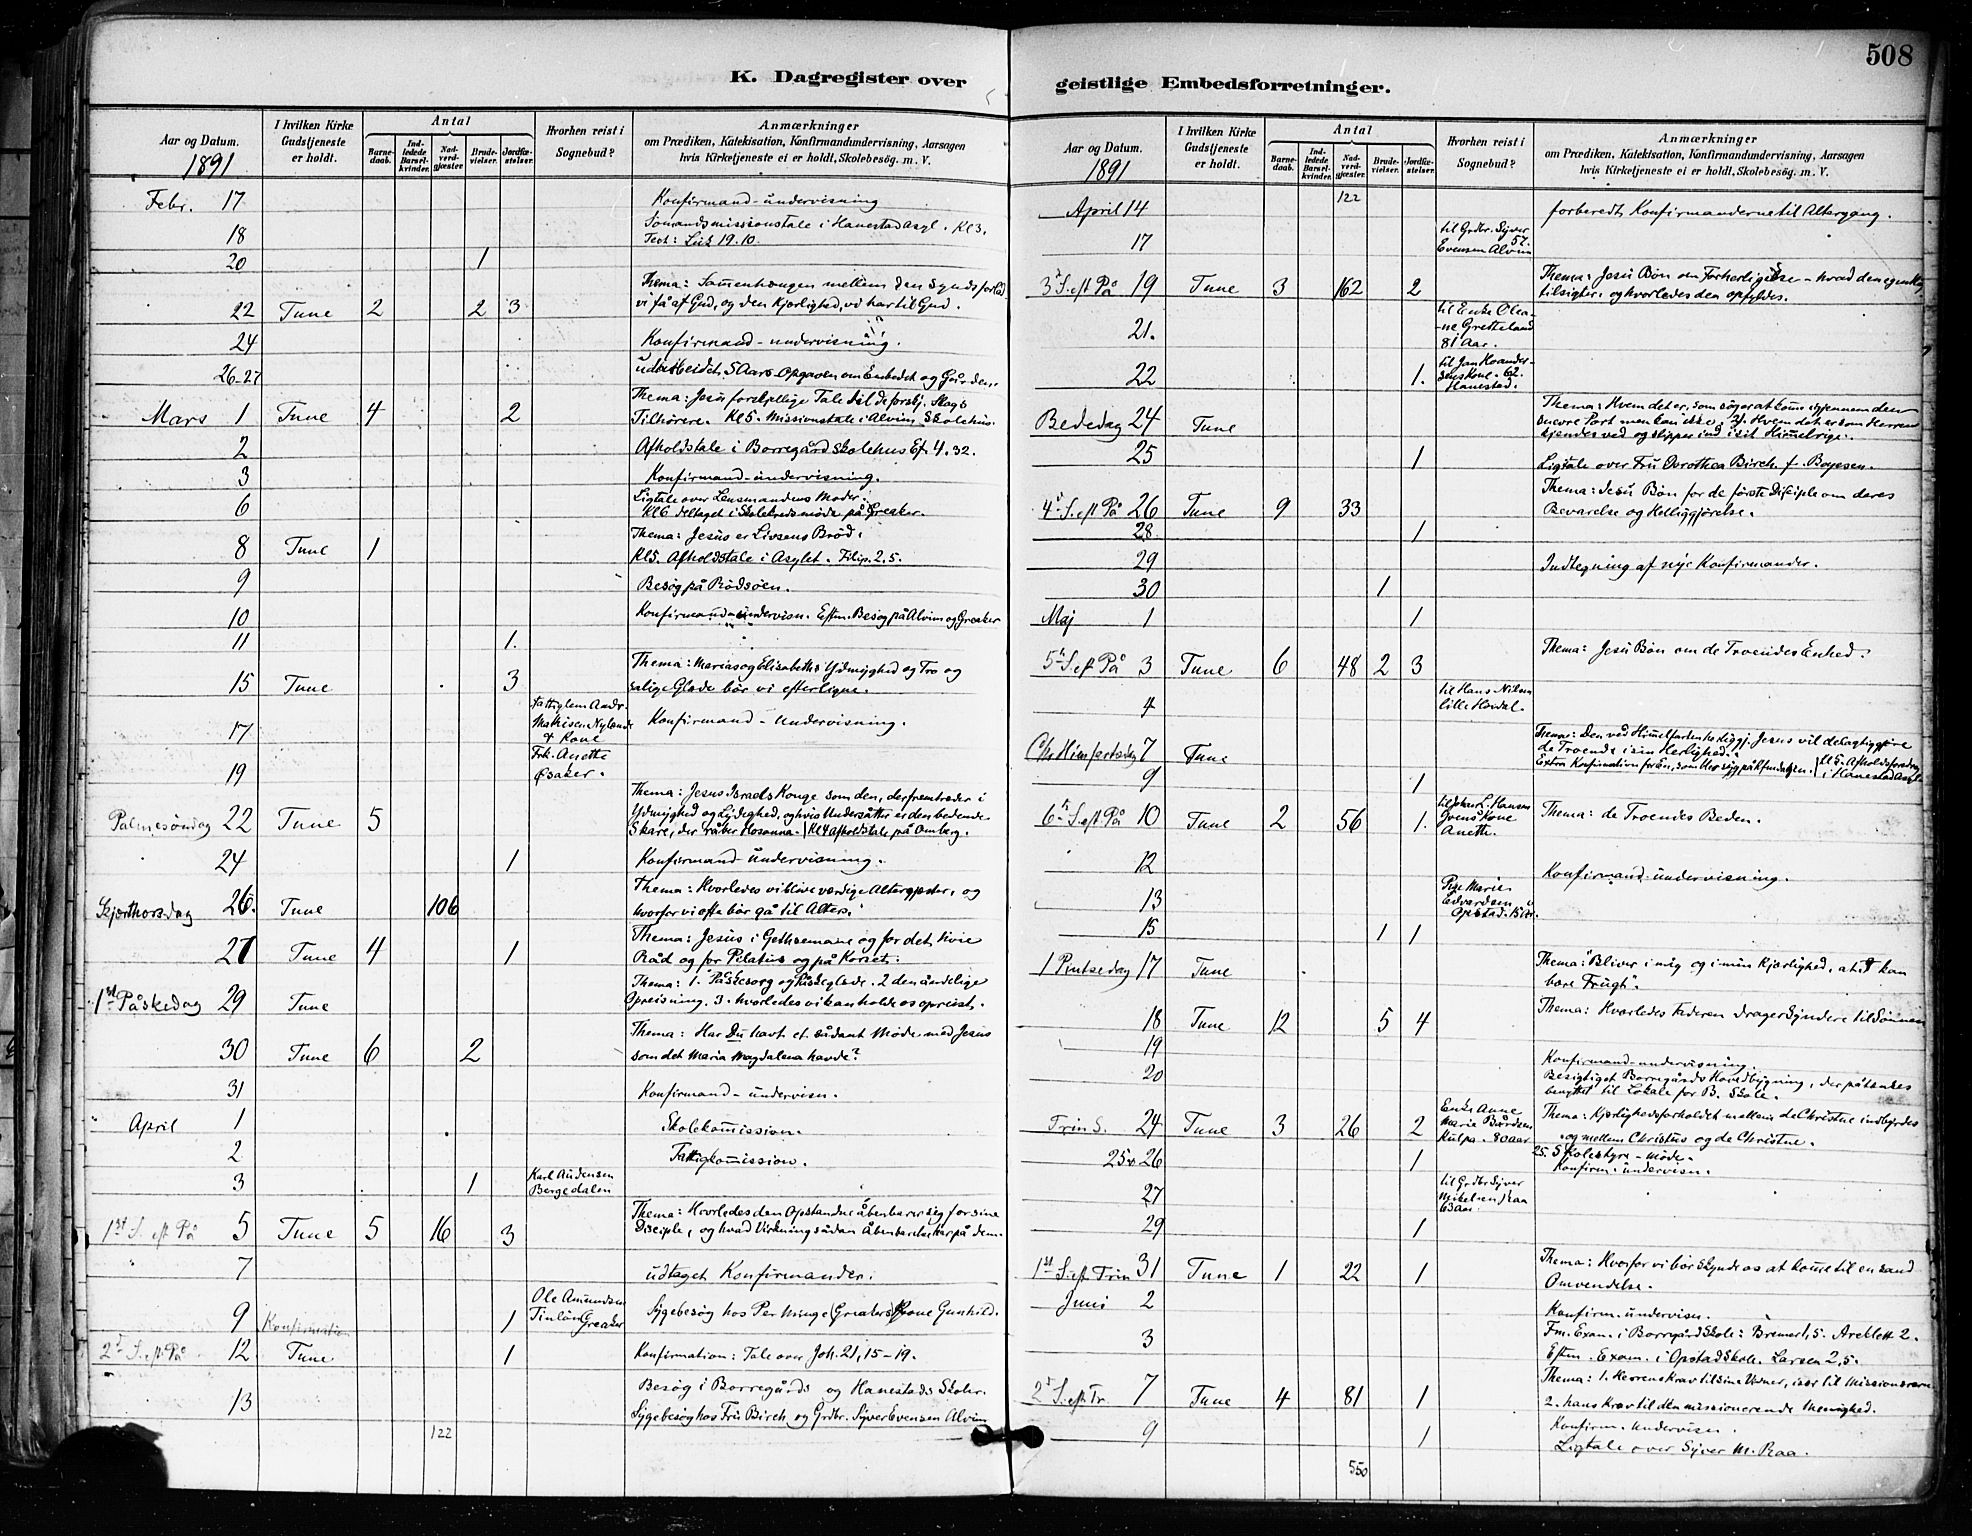 508
K. Dagregister over
geistlige Embedsforretninger.
Aar og Datum.
I hvilken Kirke Gudstjeneste er holdt.
Antal
Barnedaab.
Indledede Barselkvinder.
Nadverdgjæster
Brudevielser.
Jordfæstelser.
Hvorhen reist i Sognebud?
Anmærkninger
om Prædiken, Katekisation, Konfirmandundervisning, Aarsagen
hvis Kirketjeneste ei er holdt, Skolebesøg. m. V.
1891
Febr. 17 Konfirmand-undervisning
18 Sømandsmissionstale i Hanestad Asyl. Kl 3.
Text: Luk 19.10.
20 1
Thema: Sammenhængen mellem den Syndsforlad
22 Tune 2 2 3 vi få af Gud, og den Kjærlighed, vi har til Gud.
24 Konfirmand-undervisning.
26-27 udarbeidet 5 Aars-Opgaven om Embedet og Gården.
Mars 1 Tune 4 2 Thema: Jesu forskjellige Tale til de forskj. Slags
Tilhørere. Kl 5. Missionstale i Alvim Skolehus.
2 Afholdstale i Borregård Skolehus Ef. 4.32.
3 Konfirmand-undervisning.
6 Ligtale over Lensmandens Moder.
Kl 6 deltaget i Skolekredsmøde på Greaker.
8 Tune 1 Thema: Jesus er Livsens Brød.
Kl 5. Afholdstale i Asylet. Filip. 2,5.
9 Besøg på Rødsøen.
10 Konfirmandundervisn. Eftm. Besøg på Alvim og Greaker
11 1.
15 Tune 3 Thema: Marias og Elisabeths Ydmyghed og Tro og
salige Glæde bør vi efterligne.
17 Fattiglem Andr. Mathisen Nylænde & Kone Konfirmand-undervisning.
19 Frk. Anette Øsaker.
Thema: Jesus Israels Konge som den, der fremtræder i
Palmesøndag 22 Tune 5 Ydmyghed og Lydighed, og hvis Undersåtter er den bedende
Skare, der råber Hosanna. Kl 4 afholdstale på Omberg.
24 1 Konfirmand-undervisning.
Skjærthorsdag 26. Tune 106 Thema: Hvorledes vi blive værdige Altergjester, og
hvorfor vi ofte bør gå til Alters.
27 Tune 4 1 Thema: Jesus i Gethsemane og for det høie
Råd og for Pilatus og på Korset.
1st Påskedag 29 Tune Thema: 1. Påskesorg og Påskeglæde. 2 den åndelige
Opreisning. 3. hvorledes vi kan holde os opreist.
30 Tune 6 2 Thema: Har Du havt et sådant Møde med Jesus
som det Maria Magdalena havde?
31 Konfirmand-undervisn.
April 1 Skolekommission.
2 Fattigkommission.
3 1 Karl Audensen Bergedalen
1st S. eft På 5 Tune 5 16 3 Thema: Hvorledes den Opstandne åbenbarer sig for sine
Disciple, og hvad Virkning sådan Åbenbarelse har på dem.
7 udtaget Konfirmander.
9 Konfirmation 1 Ole Amundsen Greaker Sygebesøg hos Per Minge (Greakers) Kone Gunhild.
2n S. eft På 12 Tune 1 Konfirmation: Tale over Joh. 21, 15-19.
13 Besøg i Borregårds og Hanestads Skoler.
Sygebesøg hos Fru Birch og Grdbr. Syver Evensen Alvim
122
Aar og Datum.
I hvilken Kirke Gudstjeneste er holdt.
Antal
Barnedaab.
Indledede Barselkvinder.
Nadverdgjæster
Brudevielser.
Jordfæstelser.
Hvorhen reist i Sognebud?
Anmærkninger
om Prædiken, Katekisation, Konfirmandundervisning, Aarsagen
hvis Kirketjeneste ei er holdt, Skolebesøg. m. V.
1891
122
April 14 forberedt Konfirmanderne til Altergang.
17 til Grdbr. Syver Evensen Alvim 57.
3d S. eft På 19 Tune 3 162 2 Thema: Jesu Bøn om Forherligelse - hvad den egentlig
tilsigter, og hvorledes den opfyldes.
21. til Enke Oleane Gretteland 81 Aar.
22 1. Kone. 62. Hanestad.
Bededag 24 Tune Thema: Hvem det er, som søger at komme igjennem den
snevre Port men kan ikke. 2. Hvem det er som Herren
kjendes ved og slipper ind i sit Himmelrige.
25 1 Ligtale over Fru Dorothea Birch f. Boyesen.
4d S. eft På 26 Tune 9 33 Thema: Jesu Bøn for de første Disciple om deres
Bevarelse og Helliggjørelse.
28 1
29 Indtegning af nye Konfirmander.
30 1
Maj 1 1
5n S. eft På 3 Tune 6 48 2 3 Thema: Jesu Bøn om de Troendes Enhed.
4 til Hans Nilsen lille
Chr Himfartsdag 7 Tune Thema: Den ved Himmelfarten herliggj. Jesus vil delagtiggjøre
de Troende i sin Herlighed.
Extra Konfirmation for En, som blev syg på Konfirmdagen. Kl 5. Afholdsforedrag i Hanestad Asyl.
9 1
6n S. eft På 10 Tune 2 56 1. til Johan L. Hansen Kone Anette. Thema: de Troendes Beden.
12 Konfirmand-undervisning.
13 Pige Marie Edvardsen Opstad. 15 Aar.
15 1 1
1 Pintsedag 17 Tune Thema: "Bliver i mig og i min Kjærlighed, at I kan
bære Frugt".
18 Tune 12 5 4 Thema: Hvorledes Faderen drager Syndere til Sønnen
19 Konfirmand-undervisning.
20 Besigtiget Borregårds Hovedbygning, der påtænkes
benyttet til Lokale for B. Skole.
Trin S. 24 Tune 3 26 2 Enke Anne Marie Bårdsen Kulpa. 80 aar Thema: Kjærlighedsforholdet mellem de Christne indbyrdes
og mellem Christus og de Christne.
25 & 26 1 25. Skolestyre-Møde.
Konfirm.-undervisn.
27 til Grdbr Syver Mikelsen Raa 63 Aar.
29 1
1st S. eft Trin 31 Tune 1 22 1 Thema: Hvorfor vi bør skynde os at komme til en sand
Omvendelse.
Juni 2 Konfirm. undervisn.
3 Fm. Exam. i Borregård Skole:
Eftm. Exam. i Opstad Skole. Larsen 2,5.
2d S. eft Tr. 7 Tune 4 81 1 Thema: 1. Herrens Krav til sine Vidner, især til Missionærerne
2. hans Krav til den missionerende Menighed.
9 1 Konfirm. undervisn.
Ligtale over Syver M. Raa.
550